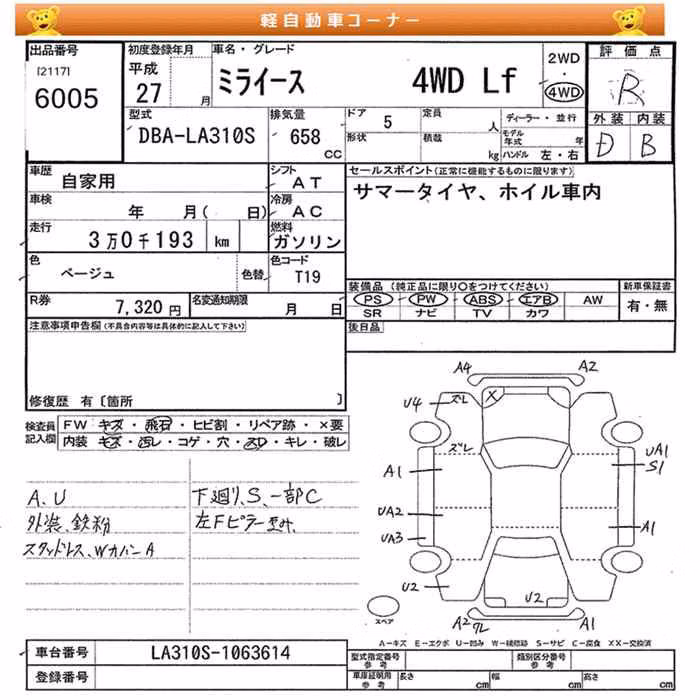 軽自動車コーナー
出品番号 初度登録年月 車名・グレード 評価点
[2117] 平成 2WD
6005 27 月 ミライース 4WD Lf ・ 4WD R
型式 排気量 ドア 5 定員 人 ディーラー・並行 外装 内装
DBA-LA310S 658 cc 形状 積載 kg モデル年式 年 D B
ハンドル 左・右
車歴 自家用 シフト AT セールスポイント(正常に機能するものに限ります)
車検 年 月( 日) 冷房 AC サマータイヤ、ホイル車内
走行 3万0千193 km 燃料 ガソリン
色 ベージュ 色替 色コード T19
装備品(純正品に限り〇をつけてください) 新車保証書
R券 7,320円 名変通知期限 月 日 PS PW ABS エアB AW 有・無
SR ナビ TV カワ
注意事項申告欄(不具合内容等は具体的に記入して下さい) 後日品
修復歴 有〔箇所 〕
検査員記入欄 FW キズ・飛石・ヒビ割・リペア跡・×要
内装 キズ・汚レ・コゲ・穴・スレ・キレ・破レ
A4 A2
U4 ズレ X
ズレ
A1 UA1
S1
UA2 A1
UA3
U2 U2
A2 ワレ A1
スペア
A、U 下廻り、S、一部C
外装、鉄粉 左Fピラー歪み、
スタッドレス、WカバーA
A-キズ E-エクボ U-凹み W-補修跡 S-サビ C-腐食 XX-交換済
車台番号 LA310S-1063614 型式指定番号 参考 類別区分番号 参考
登録番号 車庫証明用 参考 長さ cm 幅 cm 高さ cm